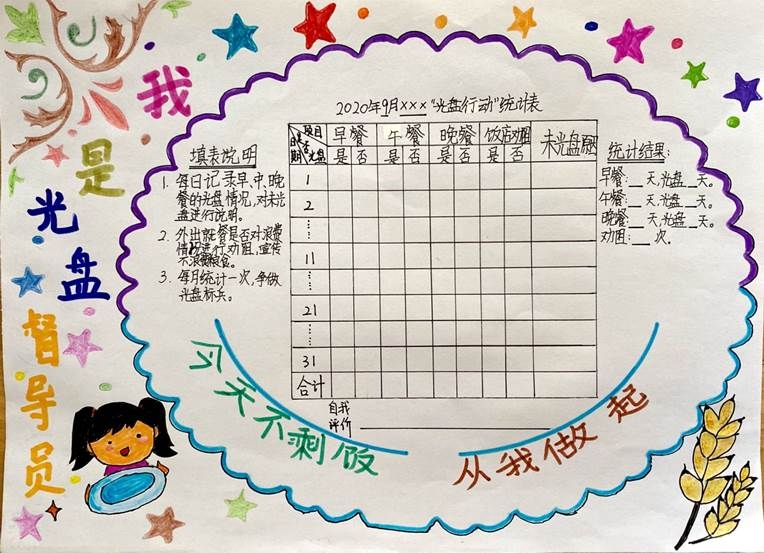 我是光盘督导员
2020年9月×××“光盘行动”统计表
填表说明
1. 每日记录早、中、晚
餐的光盘情况，对未光
盘进行说明。
2. 外出就餐是否对浪费
情况进行劝阻，宣传
不浪费粮食。
3. 每月统计一次，争做
光盘标兵。
项目
是否光盘
日期
早餐 午餐 晚餐 饭店劝阻 未光盘原因
是 否 是 否 是 否 是 否
1
2
⋮
11
⋮
21
⋮
31
合计
自我
评价
统计结果：
早餐：__天，光盘__天。
午餐：__天，光盘__天。
晚餐：__天，光盘__天。
劝阻：__次。
今天不剩饭
从我做起